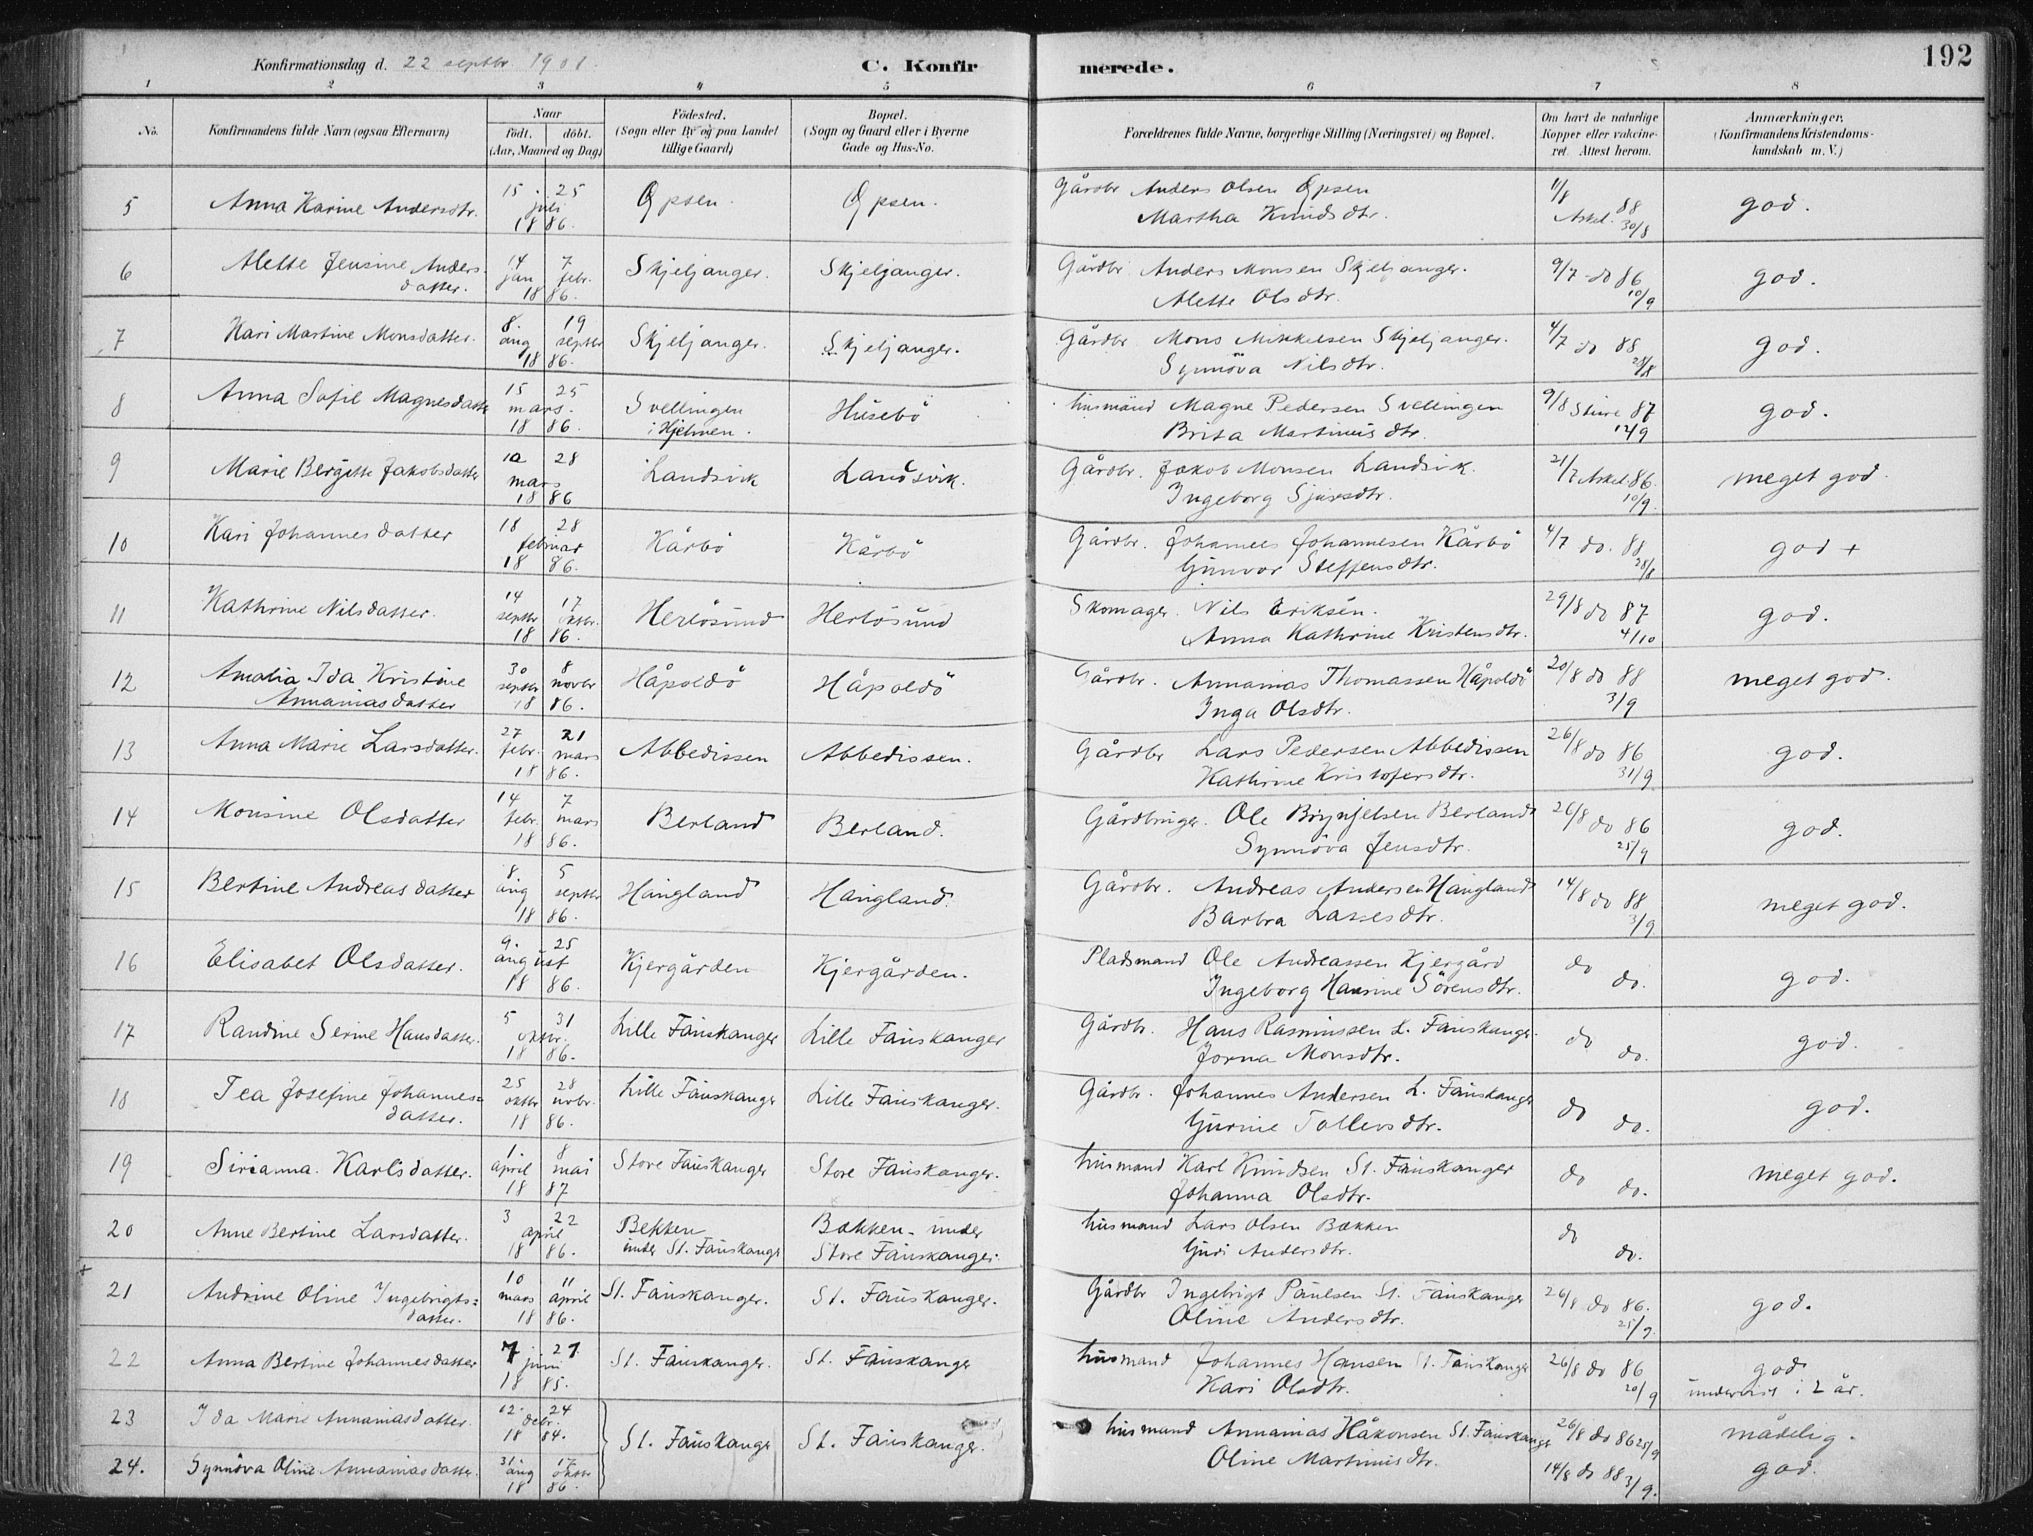 192
Konfirmationsdag d. 22 septbr 1901.
C. Konfirmerede.
1 2 3 4 5 6 7 8
No.
Konfirmandens fulde Navn (ogsaa Efternavn)
Naar
født. døbt.
(Aar, Maaned og Dag)
Fødested.
(Sogn eller By og paa Landet
tillige Gaard)
Bopæl.
(Sogn og Gaard eller i Byerne
Gade og Hus-No.
Forældrenes fulde Navne, borgerlige Stilling (Næringsvei) og Bopæl.
Om havt de naturlige
Kopper eller vakcine-
ret. Attest herom.
Anmærkninger.
(Konfirmandens Kristendoms-
kundskab m. V.)
5 Anna Karine Andersdtr. 15. 25 juli 1886. Øpsen. Øpsen. Gårdbr Anders Olsen Øpsen 11/8 88 god.
Martha Knudsdtr. Askel. 30/8
6 Alette Jensine Anders- 14 jan 7 febr. 1886. Skjeljanger. Skjeljanger. Gårdbr Anders Monsen Skjeljanger. 9/7 do 86 god.
datter. Alette Olsdtr. 10/9
7 Kari Martine Monsdatter. 8. aug 19 septbr 1886. Skjeljanger. Skjeljanger. Gårdbr Mons Mikkelsen Skjeljanger. 4/7 do 88 god.
Synnöva Nilsdtr. 28/8
8 Anna Sofie Magnesdatter 15 25 mars. 1886. Svellingen Husebö husmand Magne Pedersen Svellingen 9/8 Sture 87 god.
i Hjelmen. Brita Martinusdtr. 12/9
9 Marie Bergitte Jakobsdatter 10 28 mars 1886 Landsvik Landsvik. Gårdbr. Jakob Monsen Landsvik. 21/7 Askel. 86. meget god.
Ingeborg Sjursdtr. 10/9.
10 Kari Johannesdatter 18 28 februar 1886. Kårbö Kårbö Gårdbr. Johannes Johannesen Kårbö 4/7 do. 88 god +
Gunvor Steffensdtr. 28/8
11 Kathrine Nilsdatter. 14 septbr 17 oktbr. 1886. Herlösund Herlösund Skomager. Nils Eriksen. 29/8 do 87 god.
Anna Kathrine Kristensdtr. 4/10
12 Amalia Ida Kristine 30 septbr 8 novbr 1886. Håpoldö Håpoldö Gårdbr. Annanias Thomassen Håpoldö 20/8 do 88 meget god.
Annaniasdatter Inga Olsdtr. 3/9
13 Anna Marie Larsdatter. 27 febr. 21 mars 1886. Abbedissen Abbedissen. Gårdbr Lars Pedersen Abbedissen 26/8 do 86 god.
Kathrine Kristofersdtr. 31/9
14 Monsine Olsdatter 14 febr. 7 mars 1886. Berland Berland. Gårdbruger. Ole Brynjelsen Berland 26/8 do 86 god.
Synnöva Jensdtr. 25/9
15 Bertine Andreasdatter 8. aug 5 septbr 1886. Haugland Haugland. Gårdbr. Andreas Andersen Haugland 14/8 do 88 meget god.
Barbra Lassesdtr. 3/9
16 Elisabet Olsdatter. 9. 25 august 1886. Kjergården Kjergården. Pladsmand Ole Andreassen Kjergård do do. god.
Ingeborg Hansine Sörensdtr.
17 Randine Serine Hansdatter. 5 31 oktbr. 1886. Lille Fauskanger Lille Fauskanger Gårdbr. Hans Rasmussen L. Fauskanger. do do. god.
Jorna Monsdtr.
18 Tea Josefine Johannes= 25 oktbr 28 novbr. 1886. Lille Fauskanger Lille Fauskanger. Gårdbr. Johannes Andersen L. Fauskanger do do. god.
datter. Gurine Tollevsdtr.
19 Sirianna Karlsdatter. 1. april 8 mai 1887 Store Fauskanger Store Fauskanger. husmand Karl Knudsen St. Fauskanger do do. meget god.
Johanna Olsdtr.
20 Anne Bertine Larsdatter. 3 22 april 1886. Bekken Bækken under husmand Lars Olsen Bækken do do.
under St. Fauskanger Store Fauskanger. Guri Andersdtr.
+
21 Andrine Oline Ingebrigts= 10 mars 11 april 1886. St. Fauskanger. St. Fauskanger. Gårdbr Ingebrigt Paulsen St. Fauskanger 26/8 do 86. god.
datter. Oline Andersdtr. 25/9.
22 Anna Bertine Johannesdatter 7 27 juni 1885. St. Fauskanger. St. Fauskanger husmand Johannes Hansen St. Fauskanger 26/8 do 86 god
Kari Olsdtr. 20/9 undervist i 2 år.
23 Ida Marie Annaniasdatter. 12. 24 debr. 1884. St. Fauskanger St. Fauskanger. husmand Annanias Håkonsen St. Fauskanger 26/8 do 86 25/9 mådelig.
24. Synnöva Oline Annaniasdatter. 31. aug 17 oktbr 1886. Oline Martinusdtr. 14/8 do 88 3/9. god.